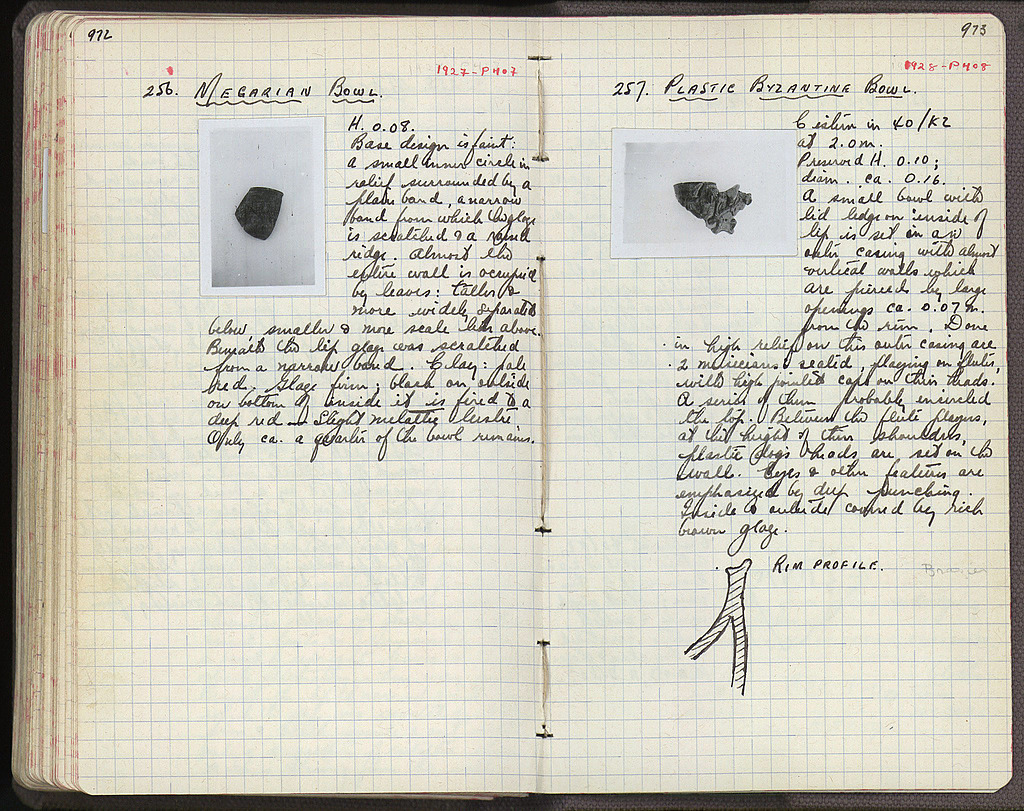 972
1927-P407
256. MEGARIAN BOWL.
H. 0.08.
Base design is faint:
a small inner circle in
relief surrounded by a
plain band, a narrow
band from which the glaze
is scratched & a raised
ridge. Almost the
entire wall is occupied
by leaves: taller &
more widely separated
below smaller & more scale like above.
Beneath the lip glaze was scratched
from a narrow band. Clay: pale
red. Glaze firm; black on outside
on bottom of inside it is fired to a
deep red — Slight metallic lustre
Only ca. a quarter of the bowl remains.
973
1928-P408
257. PLASTIC BYZANTINE BOWL.
Cistern in 40/KZ
at 2.0m.
Preserved H. 0.10;
diam. ca. 0.16.
A small bowl with
lid ledge on inside of
lip is set in an
outer casing with almost
vertical walls which
are pierced by large
openings ca. 0.07 m.
from the rim. Done
in high relief on this outer casing are
2 musicians seated, playing on flutes,
with high pointed caps on their heads.
A series of them probably encircled
the top. Between the flute players,
at the height of their shoulders,
plastic dogs heads are set on the
wall. Eyes & other features are
emphasized by deep punching.
Inside & outside covered by rich
brown glaze.
RIM PROFILE.